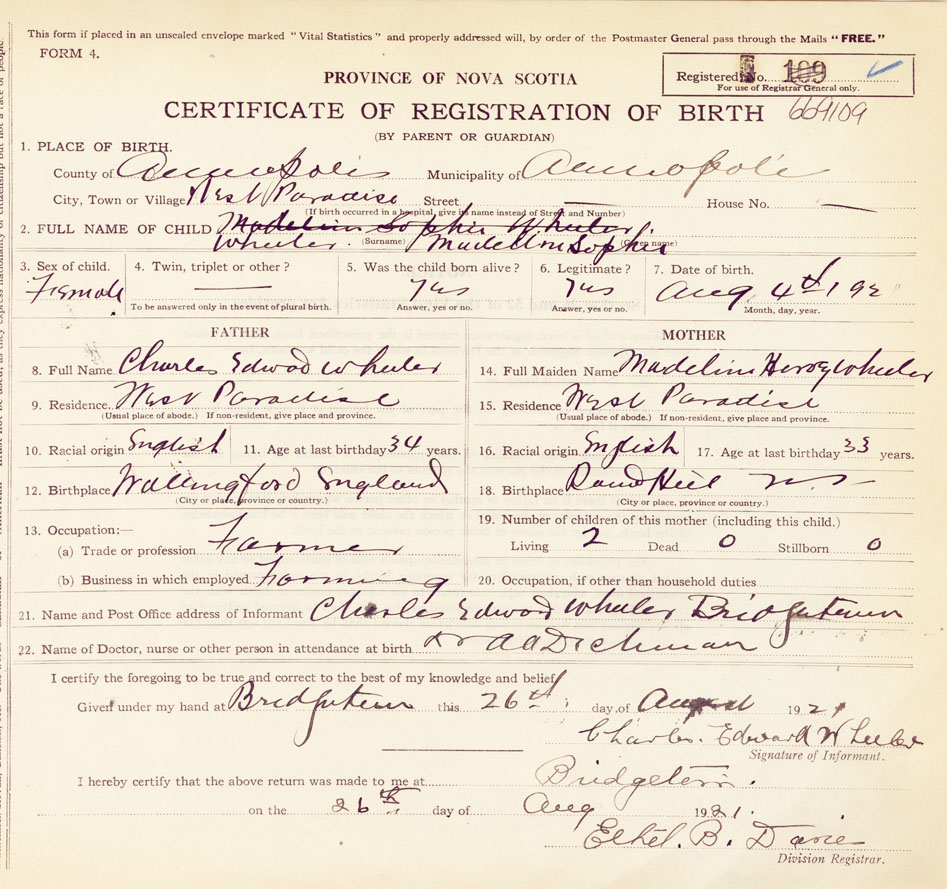 This form if placed in an unsealed envelope marked "Vital Statistics" and properly addressed will, by order of the Postmaster General pass through the Mails "FREE."
FORM 4.
PROVINCE OF NOVA SCOTIA
Registered No. 109
For use of Registrar General only.
CERTIFICATE OF REGISTRATION OF BIRTH 669109
(BY PARENT OR GUARDIAN)
1. PLACE OF BIRTH.
County of Annapolis Municipality of Annapolis
City, Town or Village West Paradise Street — House No. —
(If birth occurred in a hospital, give its name instead of Street and Number)
2. FULL NAME OF CHILD Madeline Sophie Wheeler
Wheeler (Surname) Madeline Sophie (Given name)
3. Sex of child. 4. Twin, triplet or other? 5. Was the child born alive? 6. Legitimate? 7. Date of birth.
Female — Yes Yes Aug 4th 192
To be answered only in the event of plural birth. Answer, yes or no. Answer, yes or no. Month, day, year.
FATHER MOTHER
8. Full Name Charles Edward Wheeler 14. Full Maiden Name Madeline Wheeler
9. Residence West Paradise 15. Residence West Paradise
(Usual place of abode.) If non-resident, give place and province. (Usual place of abode.) If non-resident, give place and province.
10. Racial origin English 11. Age at last birthday 34 years. 16. Racial origin English 17. Age at last birthday 33 years.
12. Birthplace Wallingford England 18. Birthplace Round Hill N.S
(City or place, province or country.) (City or place, province or country.)
13. Occupation:— 19. Number of children of this mother (including this child.)
(a) Trade or profession Farmer Living 2 Dead 0 Stillborn 0
(b) Business in which employed Farming 20. Occupation, if other than household duties
21. Name and Post Office address of Informant Charles Edward Wheeler Bridgetown
22. Name of Doctor, nurse or other person in attendance at birth Dr A A Dechman
I certify the foregoing to be true and correct to the best of my knowledge and belief
Given under my hand at Bridgetown this 26th day of August 1921
Charles Edward Wheeler
Signature of Informant.
I hereby certify that the above return was made to me at Bridgetown.
on the 26th day of Aug 1921.
Ethel. B. Davie
Division Registrar.